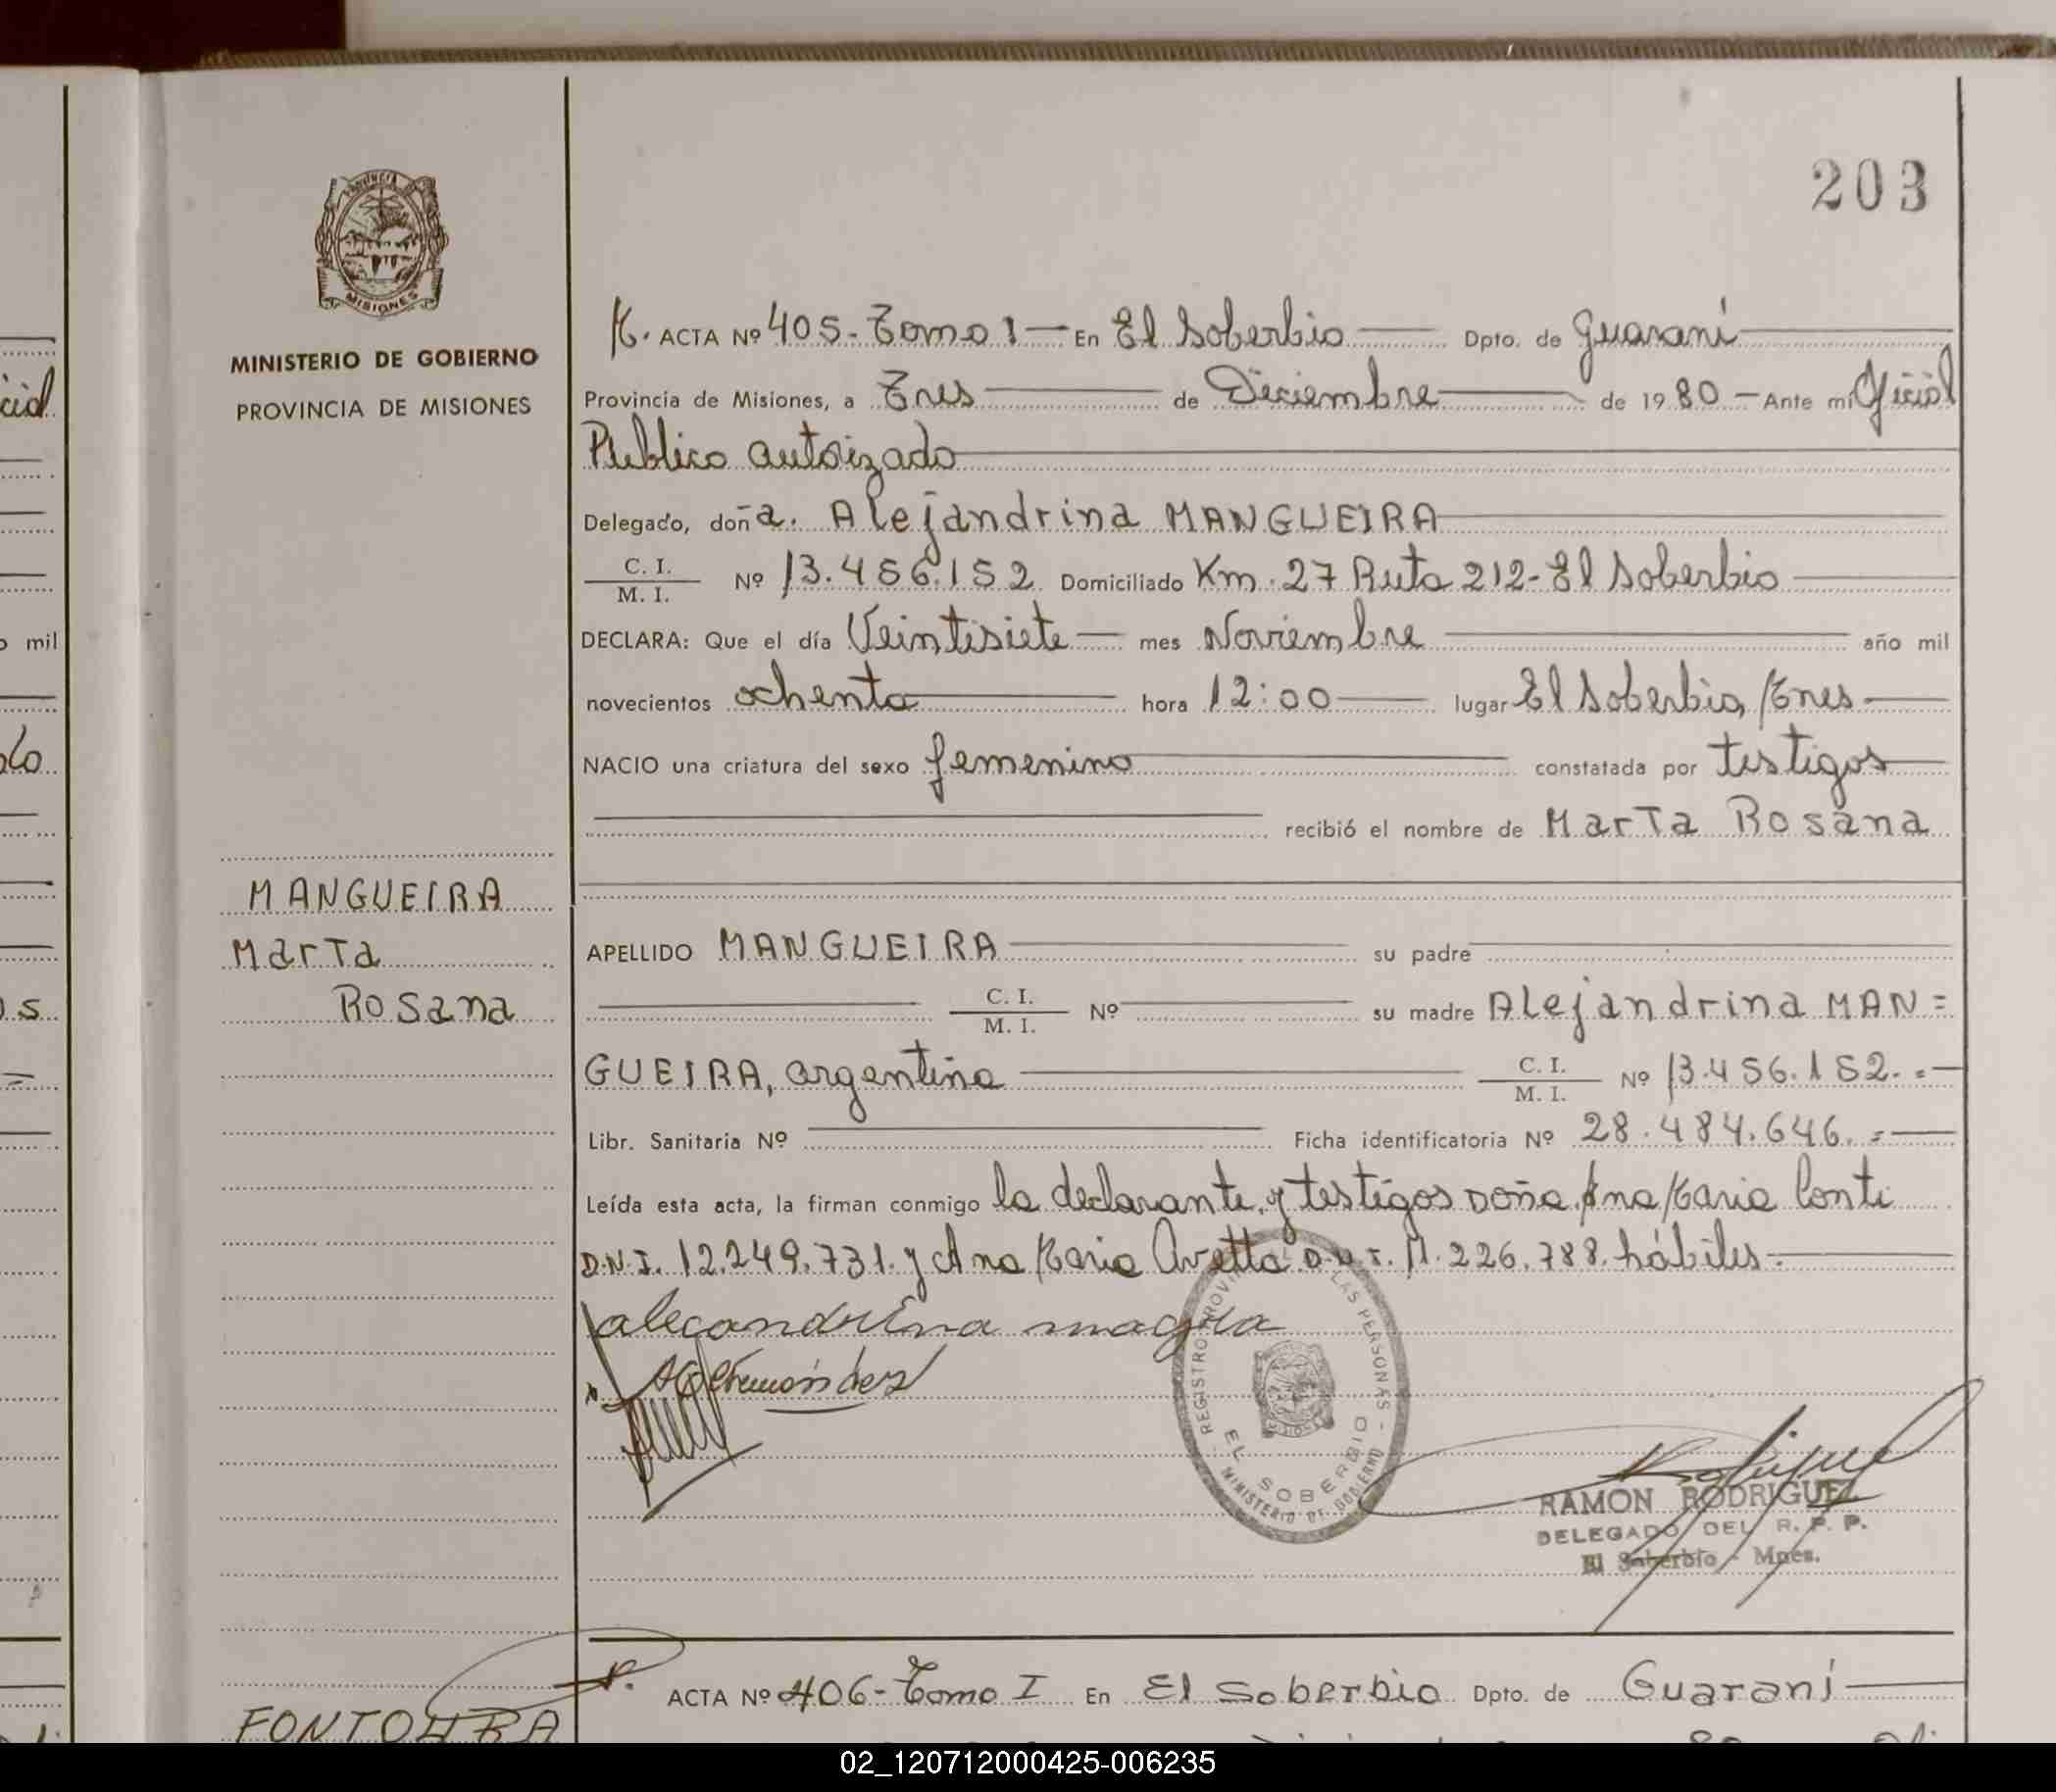 203
PROVINCIA
MISIONES
MINISTERIO DE GOBIERNO
PROVINCIA DE MISIONES
ACTA Nº 405 - Tomo I — En El Soberbio — Dpto. de Guaraní
Provincia de Misiones, a Tres — de Diciembre — de 1980 — Ante mí Oficial
Publico autorizado
Delegado, doña. Alejandrina MANGUEIRA
C. I. / M. I. Nº 13.456.152 Domiciliado Km. 27 Ruta 212 - El Soberbio
DECLARA: Que el día Veintisiete — mes Noviembre — año mil
novecientos ochenta — hora 12:00 — lugar El Soberbio, Mnes
NACIO una criatura del sexo femenino — constatada por testigos
recibió el nombre de Marta Rosana
MANGUEIRA
Marta
Rosana
APELLIDO MANGUEIRA — su padre
C. I. / M. I. Nº — su madre Alejandrina MAN=
GUEIRA, argentina — C. I. / M. I. Nº 13.456.152.=
Libr. Sanitaria Nº — Ficha identificatoria Nº 28.484.646.=
Leída esta acta, la firman conmigo la declarante y testigos Doña Ana Maria Conti
D.N.I. 12.249.731. y Ana Maria Ovetta D.N.I. 11.226.788. hábiles.
REGISTRO LAS PERSONAS
EL SOBERBIO
MINISTERIO DE GOBIERNO
RAMON RODRIGUEZ
DELEGADO DEL R. P. P.
El Soberbio - Mnes.
ACTA Nº 406 - Tomo I En El Soberbio Dpto. de Guaraní
cial
o mil
02_120712000425-006235